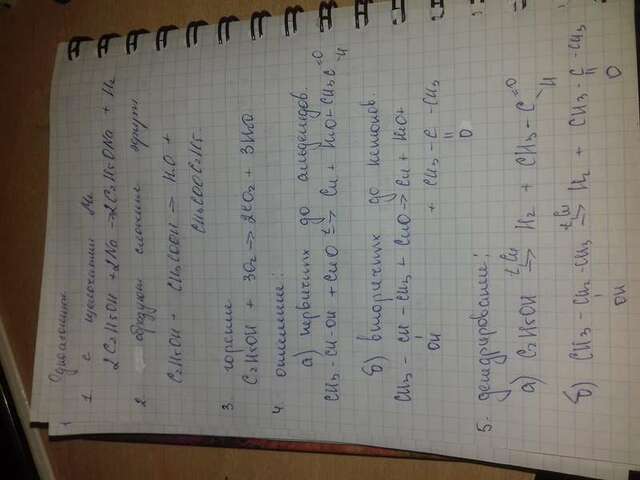 Одноатомных
1. с щелочными Ме
2C2H5OH + 2Na → 2C2H5ONa + H2
2. образуют сложные эфиры
C2H5OH + CH3COOH → H2O +
CH3COOC2H5
3. горение
C2H5OH + 3O2 → 2CO2 + 3H2O
4. окисление:
а) первичных до альдегидов.
CH3-CH-OH + CuO →t Cu + H2O + CH3C =O
-H
б) вторичных до кетонов.
CH3 - CH - CH3 + CuO → Cu + H2O +
OH
+ CH3 - C - CH3
O
5. дегидрирование:
а) C2H5OH →t Cu H2 + CH3 - C =O
H
б) CH3 - CH2 - CH3 →t Cu H2 + CH3 - C - CH3
OH O